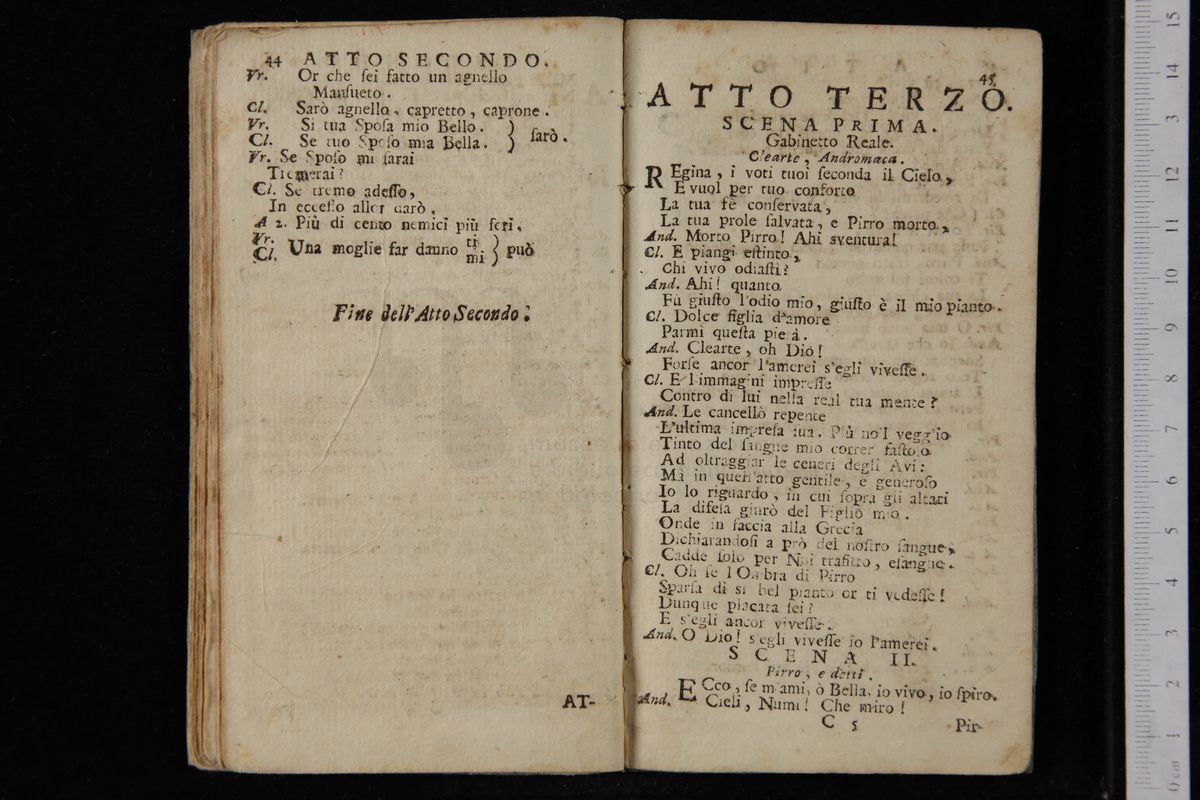 44 ATTO SECONDO.
Vr. Or che ſei fatto un agnello
Manſueto.
Cl. Sarò agnello, capretto, caprone.
Vr. Si tua Spoſa mio Bello. } ſarò.
Cl. Se tuo Spoſo mia Bella.
Vr. Se Spoſo mi ſarai
Tremerai?
Cl. Se tremo adeſſo,
In ecceſſo allor darò.
A 2. Più di cento nemici più feri,
Vr.
Cl. Una moglie far danno ti mi } può
Fine dell'Atto Secondo.
AT-
45
ATTO TERZO.
SCENA PRIMA.
Gabinetto Reale.
Clearte, Andromaca.
REgina, i voti tuoi ſeconda il Cielo,
E vuol per tuo conforto
La tua fè conſervata,
La tua prole ſalvata, e Pirro morto,
And. Morto Pirro! Ahi sventura!
Cl. E piangi eſtinto,
Chi vivo odiaſti?
And. Ahi! quanto
Fù giuſto l'odio mio, giuſto è il mio pianto.
Cl. Dolce figlia d'amore
Parmi queſta pietà.
And. Clearte, oh Dio!
Forſe ancor l'amerei s'egli viveſſe.
Cl. E l'immagini impreſſe
Contro di lui nella real tua mente?
And. Le cancellò repente
L'ultima impreſa ſua. Più no'l vegg'io
Tinto del ſangue mio correr faſtoſo
Ad oltraggiar le ceneri degli Avi:
Mà in quell'atto gentile, e generoſo
Io lo riguardo, in cui ſopra gli altari
La difeſa giurò del Figlio mio.
Onde in faccia alla Grecia
Dichiarandoſi a prò del noſtro ſangue,
Cadde ſolo per Noi trafitto, eſangue.
Cl. Oh ſe l'Ombra di Pirro
Sparſa di sì bel pianto or ti vedeſſe!
Dunque placata ſei?
E s'egli ancor viveſſe.
And. O Dio! s'egli viveſſe io l'amerei.
SCENA II.
Pirro, e detti.
ECco, ſe m'ami, ò Bella, io vivo, io ſpiro.
And. Cieli, Numi! Che miro!
C 5 Pir-
0 cm 1 2 3 4 5 6 7 8 9 10 11 12 13 14 15